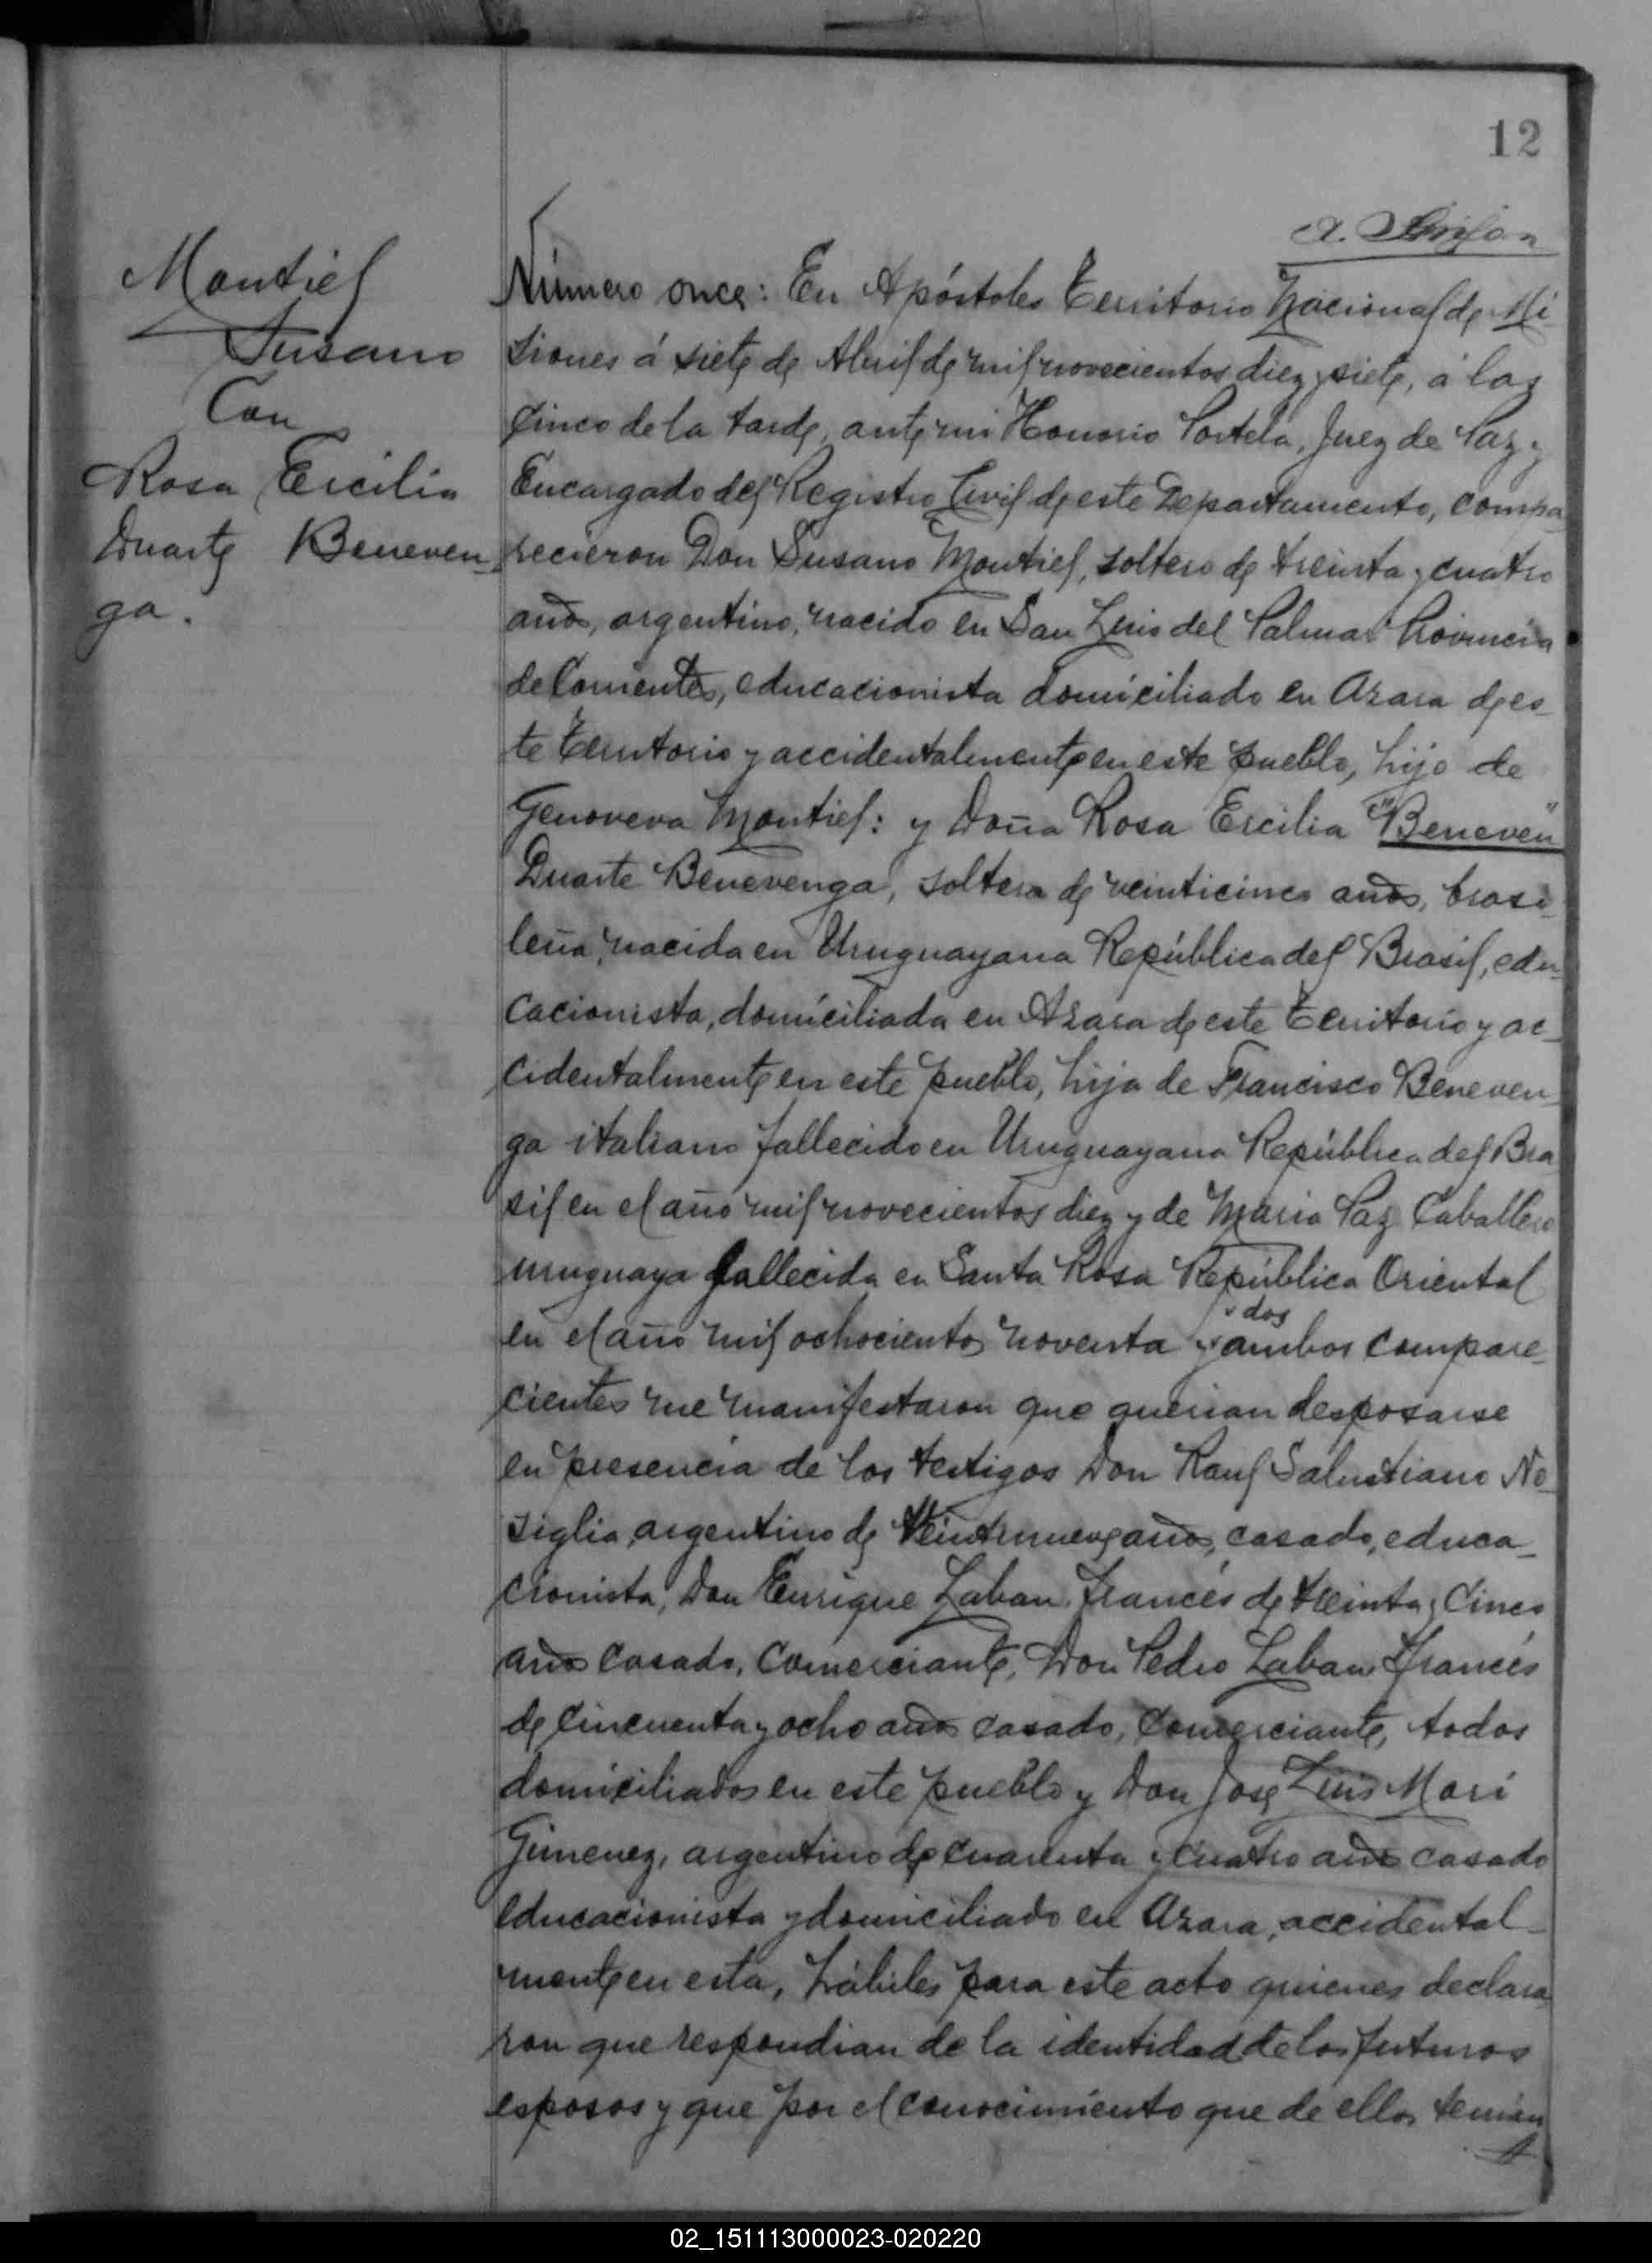 12
Montiel
Susano
Con
Rosa Ercilia
Duarte Beneven
ga.
Número once: En Apóstoles Territorio Nacional de Mi
siones á siete de Abril de mil novecientos diez y siete, á las
cinco de la tarde, ante mi Honorio Portela, Juez de Paz y
Encargado del Registro Civil de este Departamento, compa
recieron Don Susano Montiel, soltero de treinta y cuatro
años, argentino, nacido en San Luis del Palmar Provincia
de Corrientes, educacionista domiciliado en Azara de es-
te Territorio y accidentalmente en este pueblo, hijo de
Genoveva Montiel: y Doña Rosa Ercilia "Beneven"
Duarte Benevenga, soltera de veinticinco años, brasi
leña, nacida en Uruguayana República del Brasil, edu-
cacionista, domiciliada en Azara de este Territorio y ac-
cidentalmente en este pueblo, hija de Francisco Beneven-
ga italiano fallecido en Uruguayana República del Bra
sil en el año mil novecientos diez y de Maria Paz Caballero
uruguaya fallecida en Santa Rosa República Oriental
y dos
en el año mil ochocientos noventa y ambos compare-
cientes me manifestaron que querian desposarse
en presencia de los testigos Don Raul Salustiano No-
siglia, argentino de veintinueve años, casado, educa-
cionista, Don Enrique Laban francés de treinta y cinco
años casado, comerciante, Don Pedro Laban francés
de cincuenta y ocho años casado, comerciante, todos
domiciliados en este pueblo y Don José Luis Mari
Gimenez, argentino de cuarenta y cuatro años casado
educacionista y domiciliado en Azara, accidental-
mente en esta, hábiles para este acto quienes declara
ron que respondian de la identidad de los futuros
esposos y que por el conocimiento que de ellos tenian
02_151113000023-020220